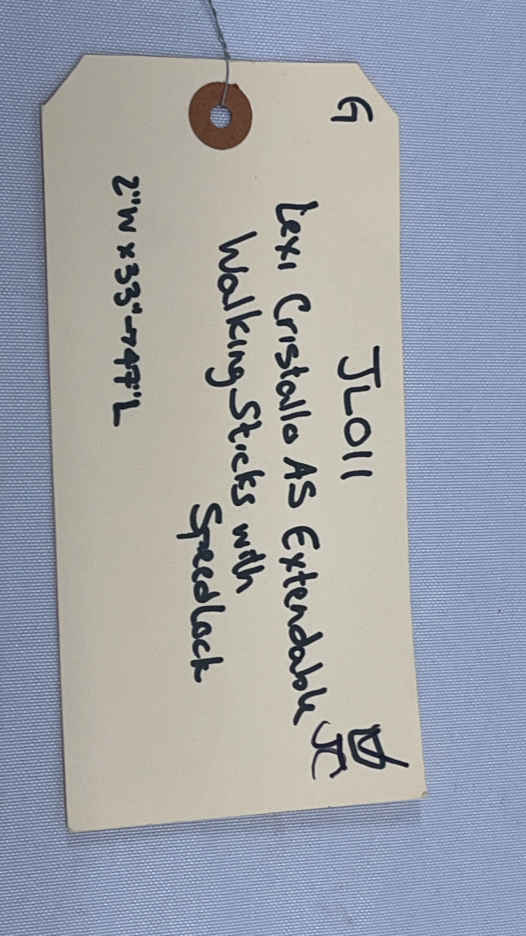 G
JL011
Lexi Cristallo AS Extendable
Walking Sticks with
Speedlock
2"W x 33"→47"L
JC